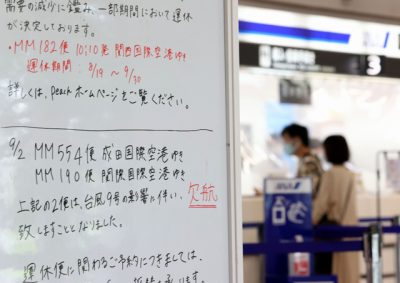 需要の減少に鑑み、一部期間において運休
が決定しております。
・MM182便 10:10発 関西国際空港ゆき
運休期間: 8/19 ～ 9/30
詳しくは、peachホームページをご覧ください。
9/2 MM554便 成田国際空港ゆき
MM190便 関西国際空港ゆき
上記の2便は、台風9号の影響に伴い、欠航
致しますこととなりました。
運休便に関わるご予約につきましては、
3
ANA